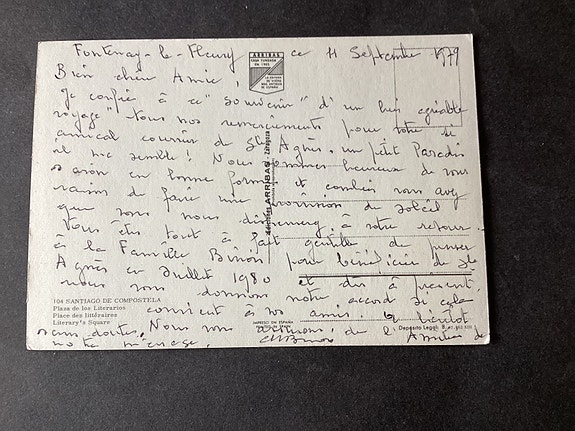 Fontenay-le-Fleury ce 11 Septembre 1979
ARRIBAS
CASA FUNDADA
EN 1905
Bien chers Amis
Je confie à ce "souvenir" d'un bien agréable
voyage" tous nos remerciements pour votre si
amical courrier de Ste Agnès. un petit Paradis
il me semble! Nous sommes heureux de vous
savoir en bonne forme et combien vous avez
raison de faire une provision de soleil
que vous nous dispenserez à votre retour.
Vous êtes tout à fait gentille de penser
à la Famille pour bénéficier de Ste
Agnès en Juillet 1980 et dès à présent,
nous vous donnons notre accord si cela
convient à vos amis. à bientôt
sans doute, Nous vous de
notre ménage.
Ediciones ARRIBAS - Zaragoza
104 SANTIAGO DE COMPOSTELA
Plaza de los Literarios
Place des littéraires
Literary's Square
IMPRESO EN ESPAÑA
PRINTED IN SPAIN
Depósito Legal: B.